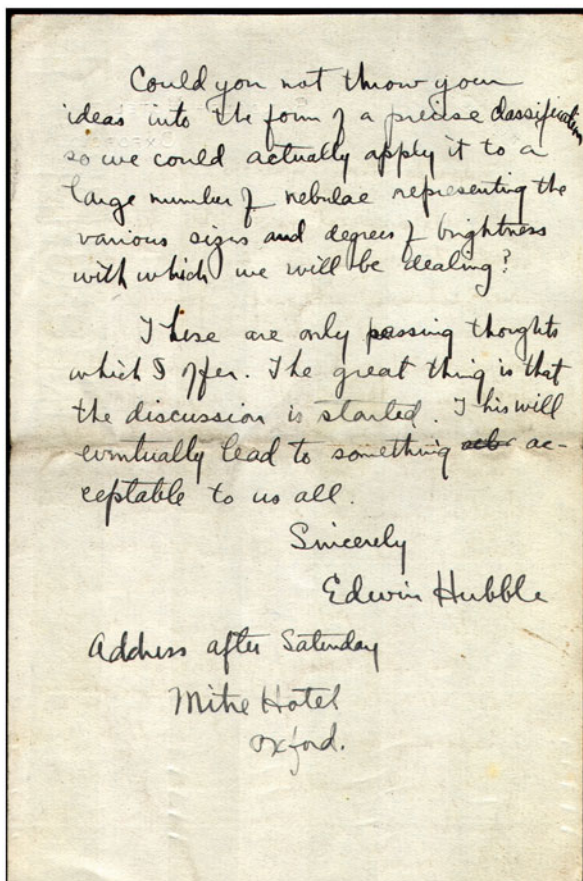 Could you not throw your
ideas into the form of a precise classification
so we could actually apply it to a
large number of nebulae representing the
various sizes and degrees of brightness
with which we will be dealing?
These are only passing thoughts
which I offer. The great thing is that
the discussion is started. This will
eventually lead to something ac-
ceptable to us all.
Sincerely
Edwin Hubble
Address after Saturday
Mitre Hotel
Oxford.